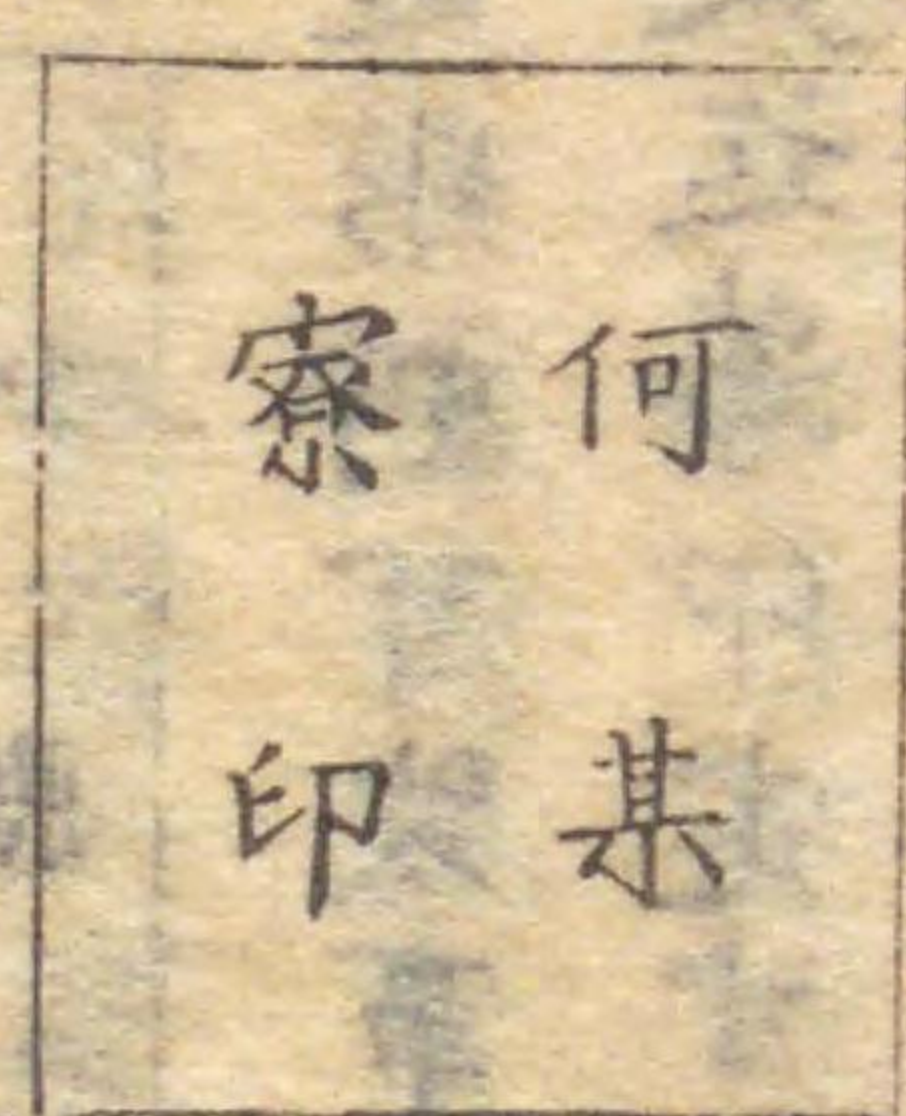 何某
寮印